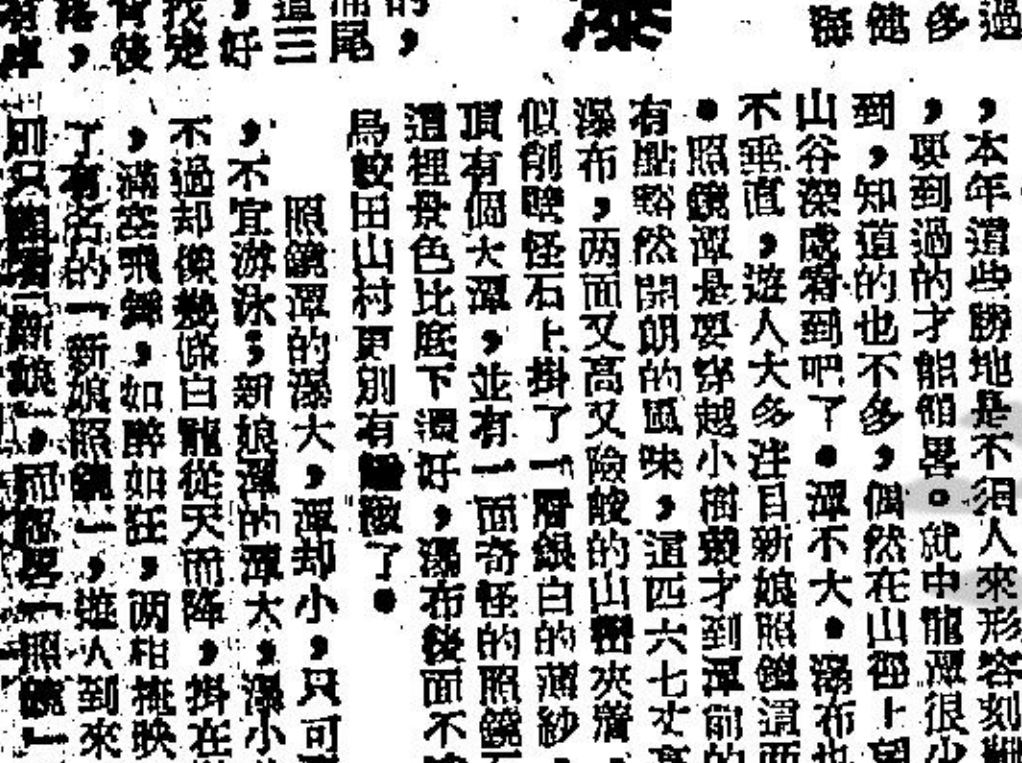 過
多
他
瀑
的，
浦尾
這三
，好
找定
背後
，本年這些勝地是不須人來形容刻
，要到過的才能領畧。就中龍潭很少
到，知道的也不多，偶然在山徑上望
山谷深處看到吧了。潭不大。瀑布也
不垂直，遊人大多注目新娘照鏡這兩
。照鏡潭是要穿越小樹叢才到潭前的
有點豁然開朗的風味，這四六七丈高
瀑布，两面又高又險峻的山壁夾着
似削壁怪石上掛了一層銀白的薄紗
頂有個大潭，並有一面奇怪的照鏡石
這裡景色比底下還好，瀑布後面不
烏蛟田山村更別有了。
照鏡潭的瀑大，潭却小，只可
，不宜游泳；新娘潭的潭大，瀑小
不過却像幾條白龍從天而降，掛在
，滿空飛舞，如醉如狂，两相掩映
了有名的「新娘照鏡」，遊人到來
別只，而忽畧「照鏡」